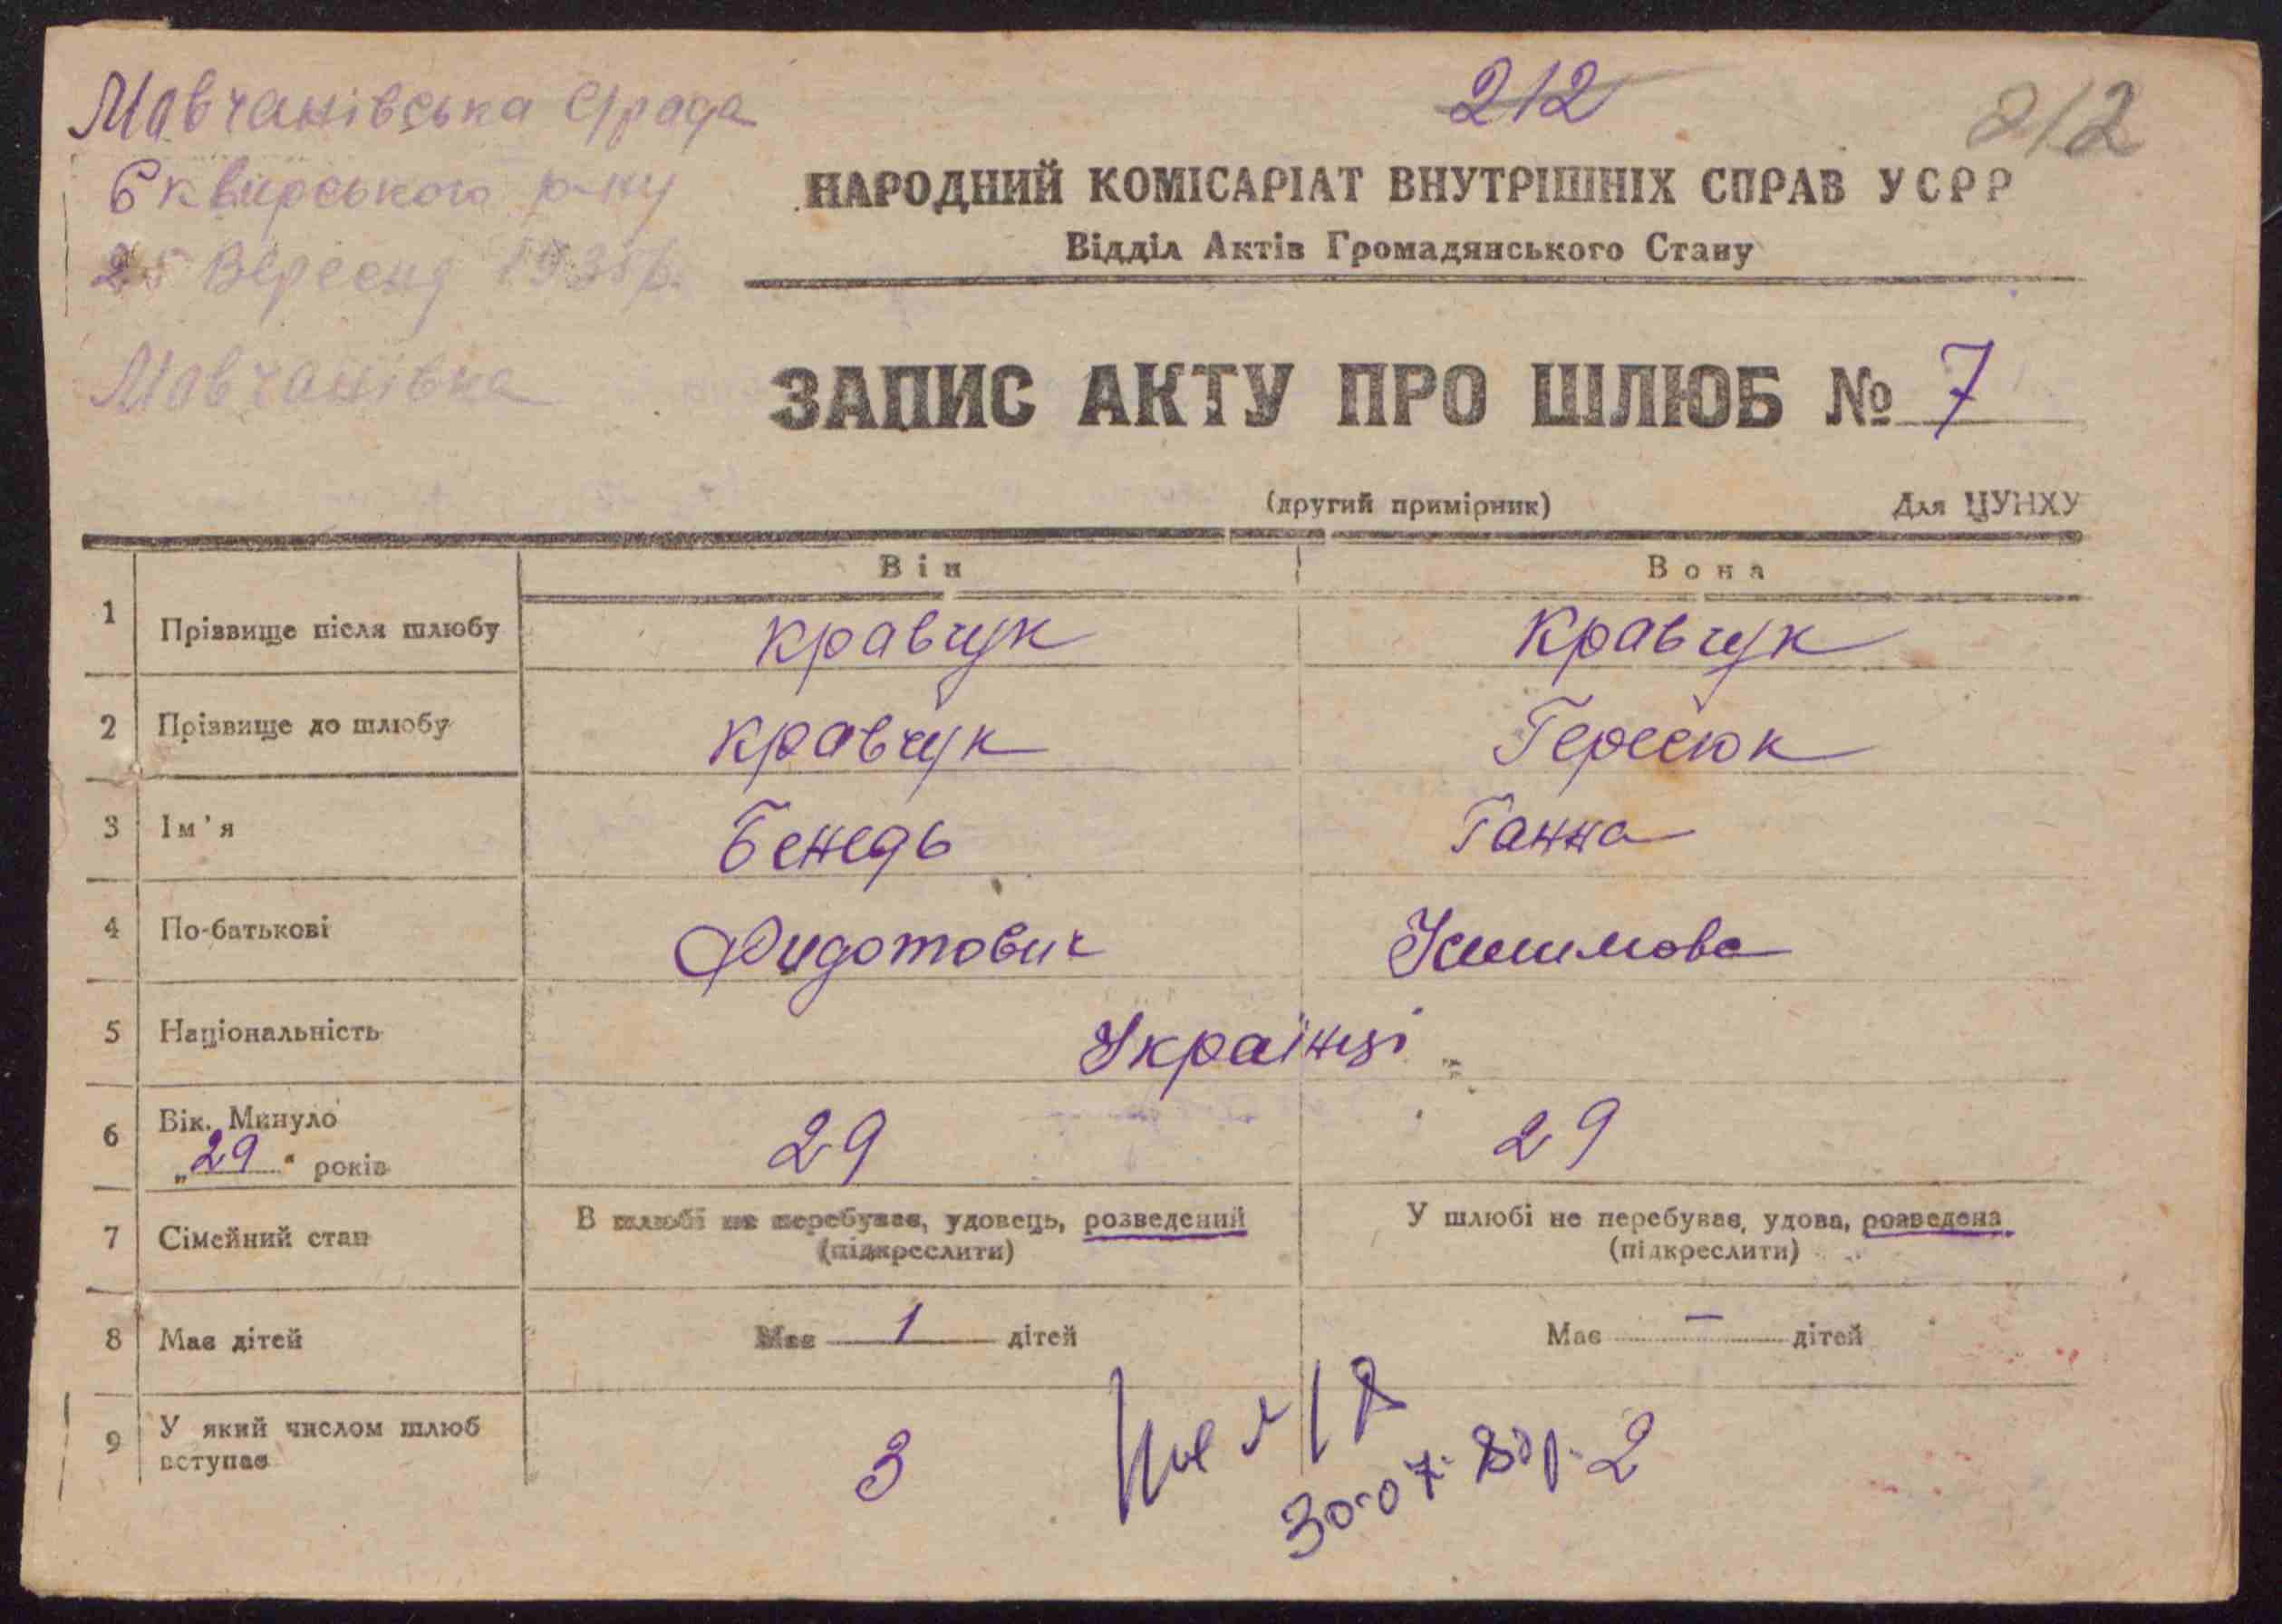 Мовчанівська с/рада
Сквирського р-ну
25 Вересня 1935 р.
Мовчанівка
212
212
НАРОДНИЙ КОМІСАРІАТ ВНУТРІШНІХ СПРАВ УСРР
Відділ Актів Громадянського Стану
ЗАПИС АКТУ ПРО ШЛЮБ № 7
(другий примірник) Для ЦУНХУ
Він Вона
1 Прізвище після шлюбу Кравчук Кравчук
2 Прізвище до шлюбу Кравчук Гересюк
3 Ім'я Бенедь Ганна
4 По-батькові Фидотович
5 Національність Українці
6 Вік. Минуло „29“ років 29 29
7 Сімейний стан В шлюбі не перебував, удовець, розведений (підкреслити) У шлюбі не перебував, удова, розведена (підкреслити)
8 Має дітей Має 1 дітей Має — дітей
9 У який числом шлюб вступає 3 2